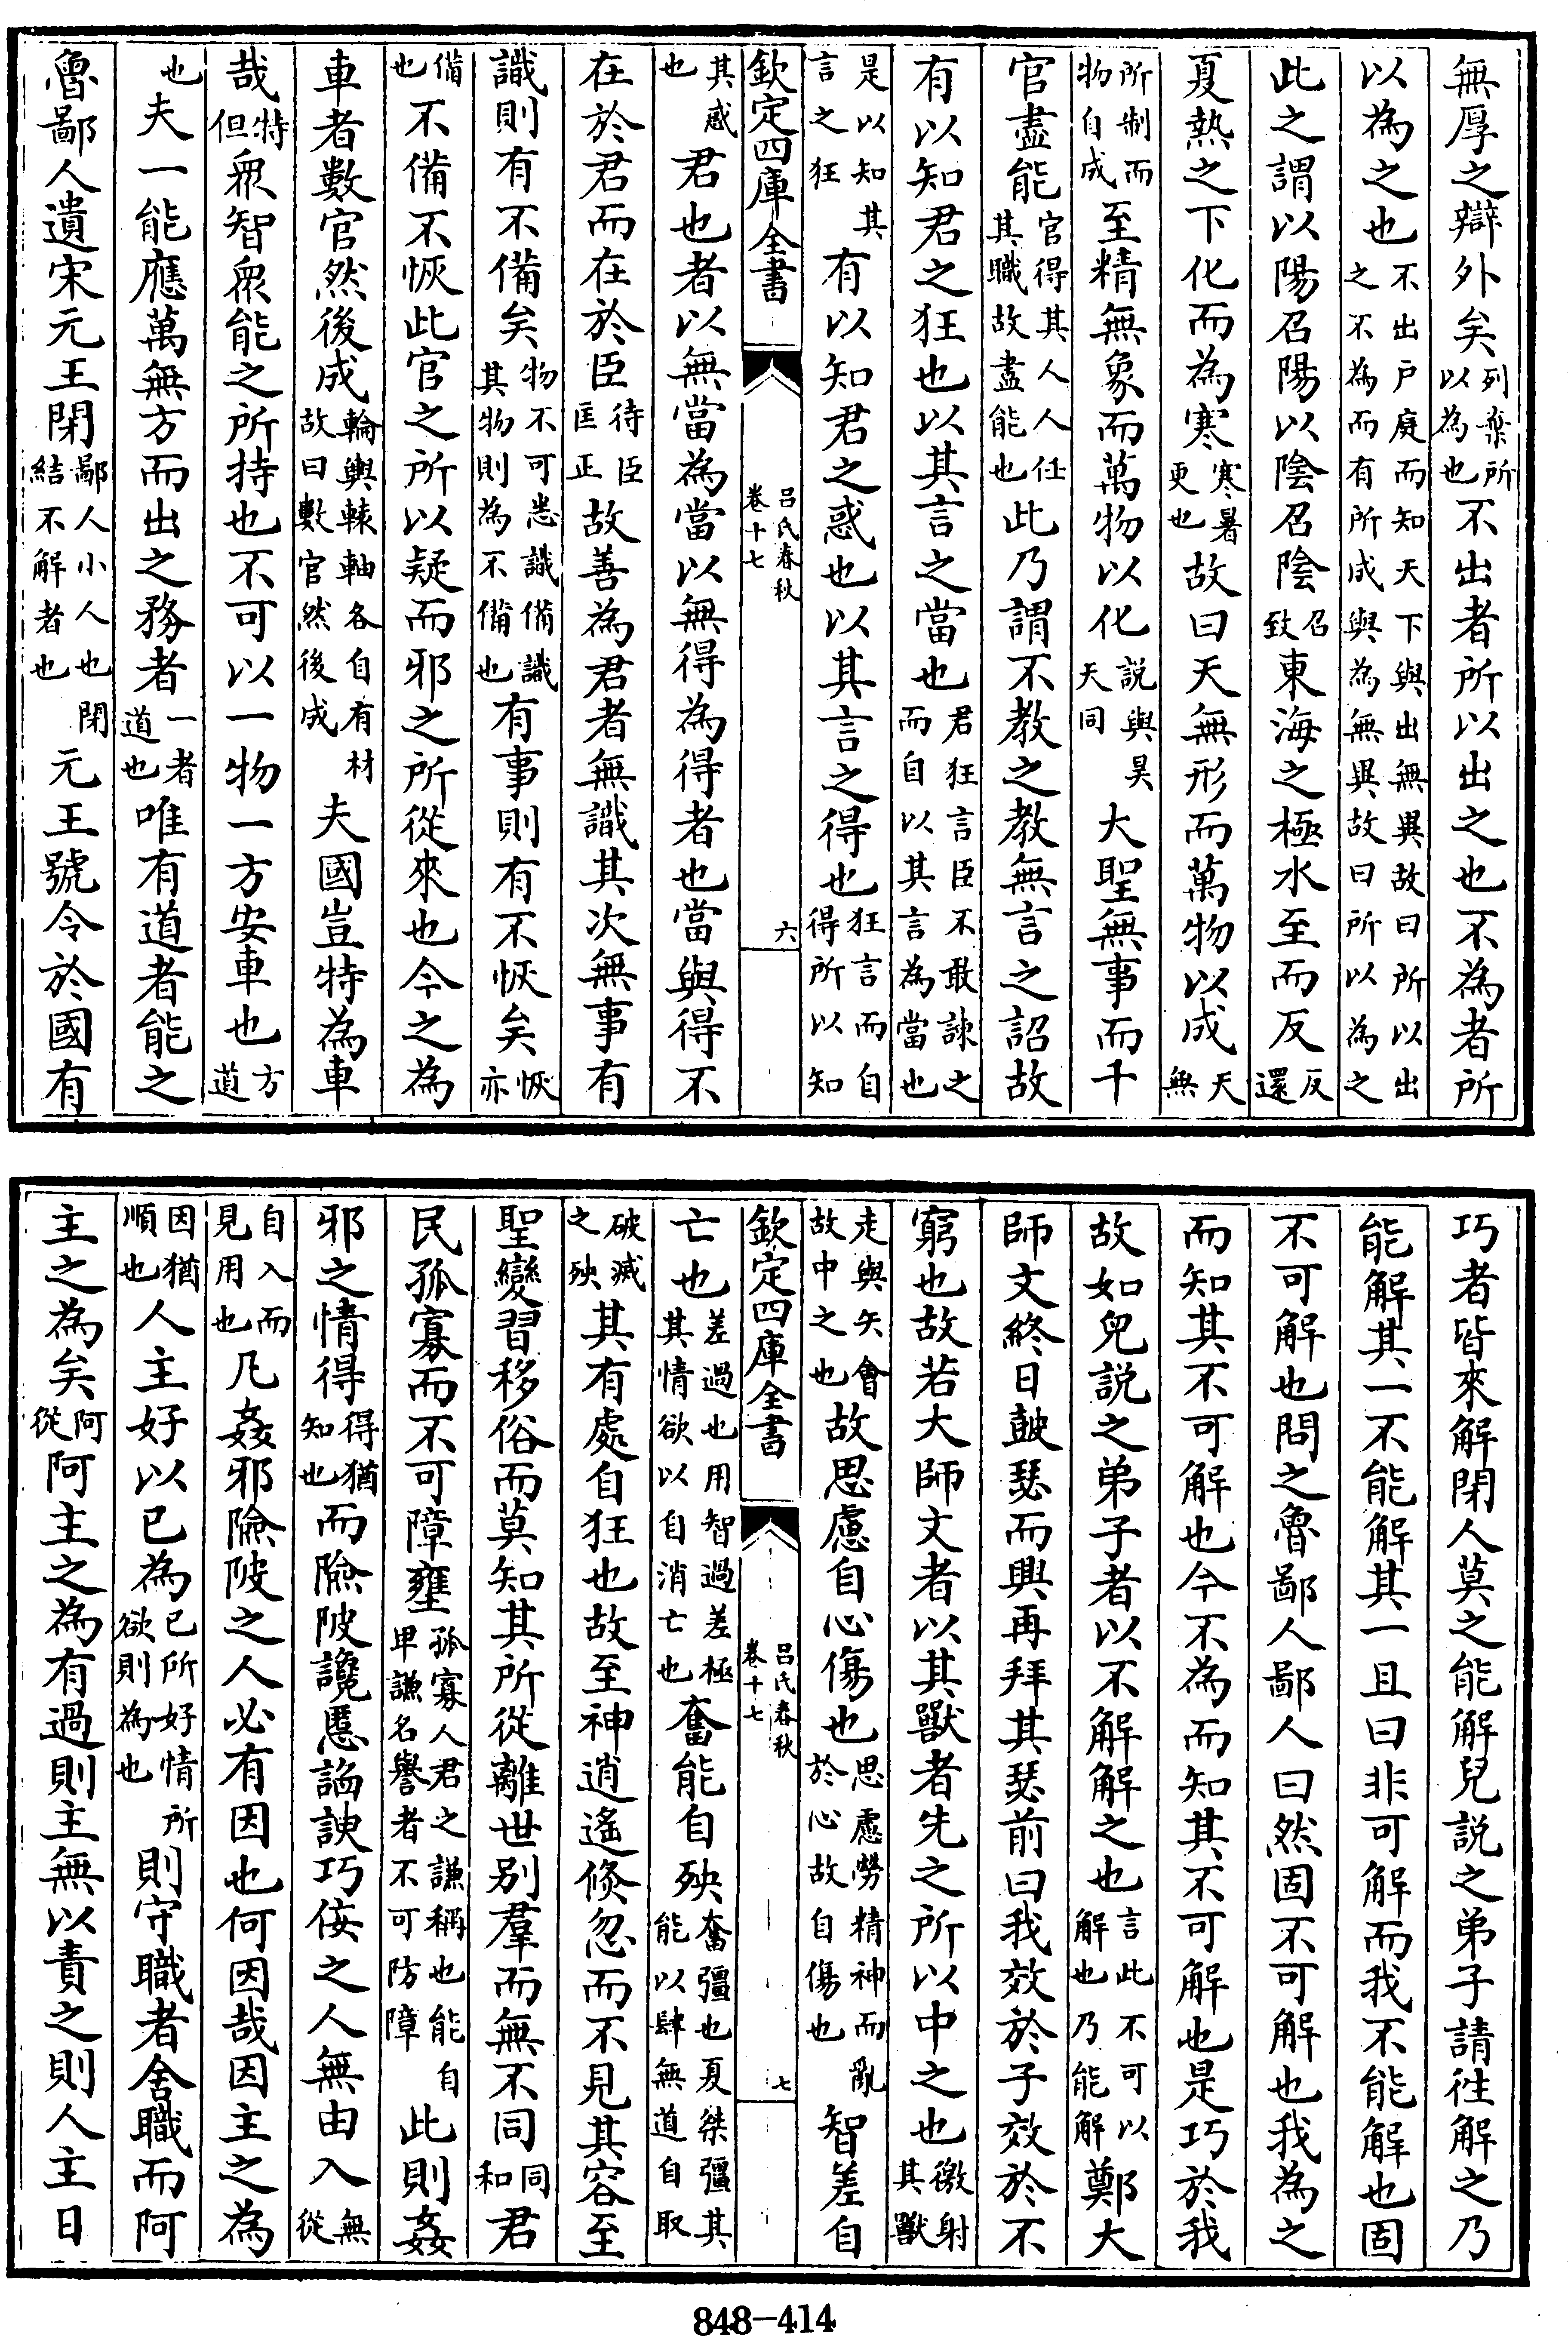 無厚之辯外矣列桀所以為也不出者所以出之也不為者所
以為之也不出戶庭而知天下與出無異故曰所以出之不為而有所成與為無異故曰所以為之
此之謂以陽召陽以陰召陰召致東海之極水至而反反還
夏熱之下化而為寒寒暑更也故曰天無形而萬物以成天無
所制而物自成至精無象而萬物以化說與昊天同大聖無事而千
官盡能官得其人人任其職故盡能也此乃謂不教之教無言之詔故
有以知君之狂也以其言之當也君狂言臣不敢諫之而自以其言為當也
是以知其言之狂有以知君之惑也以其言之得也狂言而自得所以知
欽定四庫全書
呂氏春秋
卷十七
六
其惑也君也者以無當為當以無得為得者也當與得不
在於君而在於臣待臣匡正故善為君者無識其次無事有
識則有不備矣物不可悉識備識其物則為不備也有事則有不恢矣恢亦
備也不備不恢此官之所以疑而邪之所從來也今之為
車者數官然後成輪輿轅軸各自有材故曰數官然後成夫國豈特為車
哉特但衆智衆能之所持也不可以一物一方安車也方道
也夫一能應萬無方而出之務者一者道也唯有道者能之
魯鄙人遺宋元王閉鄙人小人也閉結不解者也元王號令於國有
巧者皆來解閉人莫之能解兒説之弟子請往解之乃
能解其一不能解其一且曰非可解而我不能解也固
不可解也問之魯鄙人鄙人曰然固不可解也我為之
而知其不可解也今不為而知其不可解也是巧於我
故如兒説之弟子者以不解解之也言此不可以解也乃能解鄭大
師文終日鼓瑟而興再拜其瑟前曰我效於子效於不
窮也故若大師文者以其獸者先之所以中之也徼射其獸
走與矢會故中之也故思慮自心傷也思慮勞精神而亂於心故自傷也智差自
欽定四庫全書
呂氏春秋
卷十七
七
亡也差過也用智過差極其情欲以自消亡也奮能自殃奮彊也夏桀彊其能以肆無道自取
破滅之殃其有處自狂也故至神逍遙倏忽而不見其容至
聖變習移俗而莫知其所從離世别羣而無不同同和君
民孤寡而不可障壅孤寡人君之謙稱也能自卑謙名譽者不可防障此則姦
邪之情得得猶知也而險陂讒慝諂諛巧佞之人無由入無從
自入而見用也凡姦邪險陂之人必有因也何因哉因主之為
因猶順也人主好以已為已所好情所欲則為也則守職者舍職而阿
主之為矣阿從阿主之為有過則主無以責之則人主日
848-414